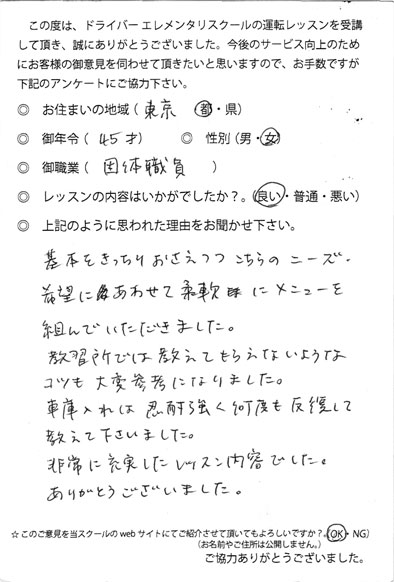 この度は、ドライバー エレメンタリスクールの運転レッスンを受講
して頂き、誠にありがとうございました。今後のサービス向上のため
にお客様の御意見を伺わせて頂きたいと思いますので、お手数ですが
下記のアンケートにご協力下さい。
◎ お住まいの地域（東京 都・県）
◎ 御年令（45才） ◎ 性別（男・女）
◎ 御職業（団体職員 ）
◎ レッスンの内容はいかがでしたか？。（良い・普通・悪い）
◎ 上記のように思われた理由をお聞かせ下さい。
基本をきっちりおさえつつ こちらの ニーズ・
希望に あわせて 柔軟 にメニューを
組んでいただきました。
教習所では 教えてもらえないような
コツも 大変参考になりました。
車庫入れは 忍耐強く何度も反復して
教えて下さいました。
非常に充実したレッスン内容でした。
ありがとうございました。
☆このご意見を当スクールの web サイトにてご紹介させて頂いてもよろしいですか？。（OK・NG）
（お名前やご住所は公開しません。）
ご協力ありがとうございました。